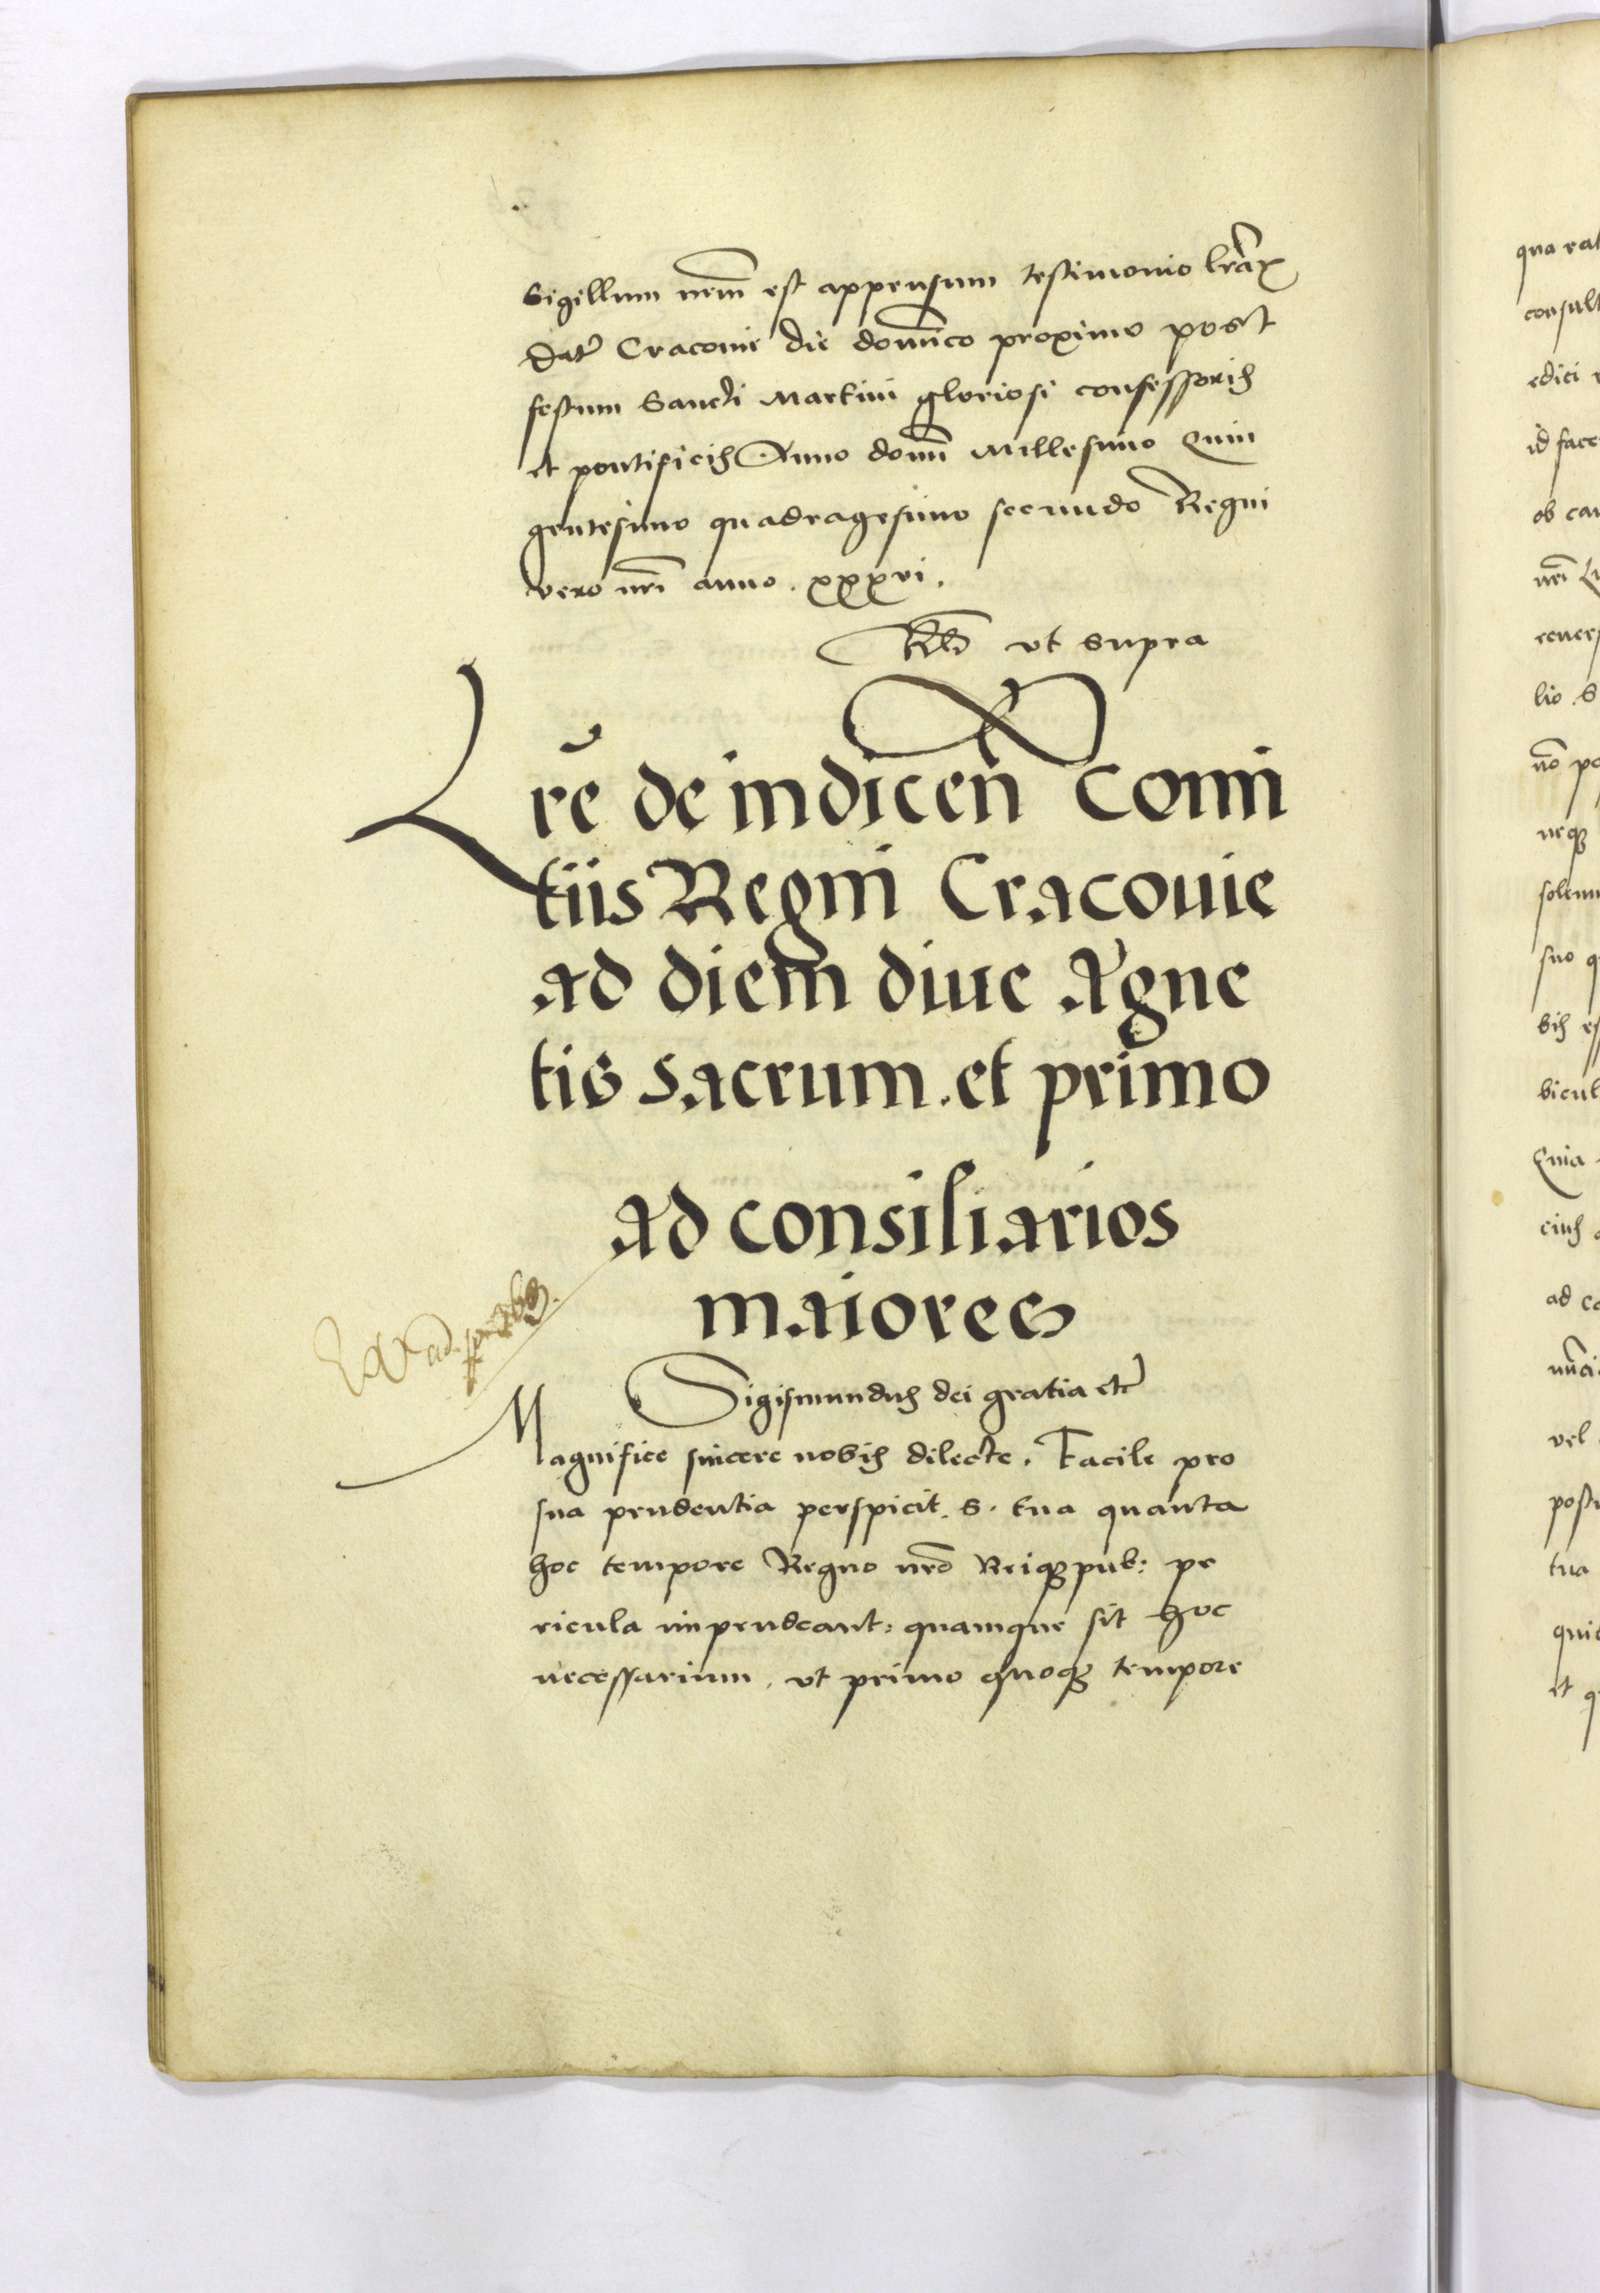 Sigillum nrm̄ est appensum testimonio lrarꝫ
Datꝭ Cracovie die dominico proximo post
festum Sancti Martini gloriosi confessoris
et pontificis Anno domī Millesimo Quin
gentesimo quadragesimo secundo Regni
vero nrī anno . xxxvi .
ut supra
Lrē de indicen̄ Comi
tiis Regni Cracovie
ad diem dive Agne
tis sacrum . et primo
ad consiliarios
maiores
Sigismundus dei gratia etc̄
Magnifice sincere nobis dilecte . Facile pro
sua prudentia perspicit . S . tua quanta
hoc tempore Regno nrō Reiqꝫ pub: pe
ricula impendeant: quamque sit hoc
necessarium , ut primo quoqꝫ tempore
qua rat
consult
edici
id face
ob cau
nrī
revers
lio . S
nō po
neqꝫ
solenn
suo q
bis es
bicul
Quia
eius
ad co
nūci
vel
post
tua
qui
et q